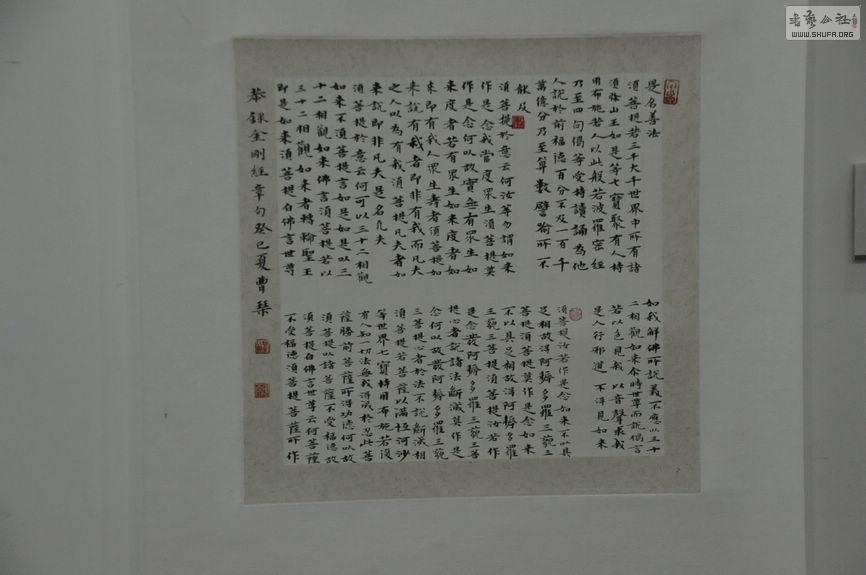 是名善法
須菩提若三千大千世界中所有諸
須彌山王如是等七寶聚有人持
用布施若人以此般若波羅蜜經
乃至四句偈等受持讀誦為他
人說於前福德百分不及一百千
萬億分乃至算數譬喻所不
能及
須菩提於意云何汝等勿謂如來
作是念我當度眾生須菩提莫
作是念何以故實無有眾生如
來度者若有眾生如來度者如
來即有我人眾生壽者須菩提如
來說有我者即非有我而凡夫
之人以為有我須菩提凡夫者如
來說即非凡夫是名凡夫
須菩提於意云何可以三十二相觀
如來不須菩提言如是如是以三
十二相觀如來佛言須菩提若以
三十二相觀如來者轉輪聖王
即是如來須菩提白佛言世尊
如我解佛所說義不應以三十
二相觀如來余時世尊而說偈言
若以色見我以音聲求我
是人行邪道不得見如來
須菩提汝若作是念如來不以具
足相故得阿耨多羅三藐三
菩提須菩提莫作是念如來
不以具足相故得阿耨多羅
三藐三菩提須菩提汝若作
是念發阿耨多羅三藐三菩
提心者說諸法斷滅莫作是
念何以故發阿耨多羅三藐
三菩提心者於法不說斷滅相
須菩提若菩薩以滿恒河沙
等世界七寶持用布施若復
有人知一切法無我得成於忍此菩
薩勝前菩薩所得功德何以故
須菩提以諸菩薩不受福德故
須菩提白佛言世尊云何菩薩
不受福德須菩提菩薩所作
恭錄金剛經章句癸巳夏曹琹
WWW.SHUFA.ORG